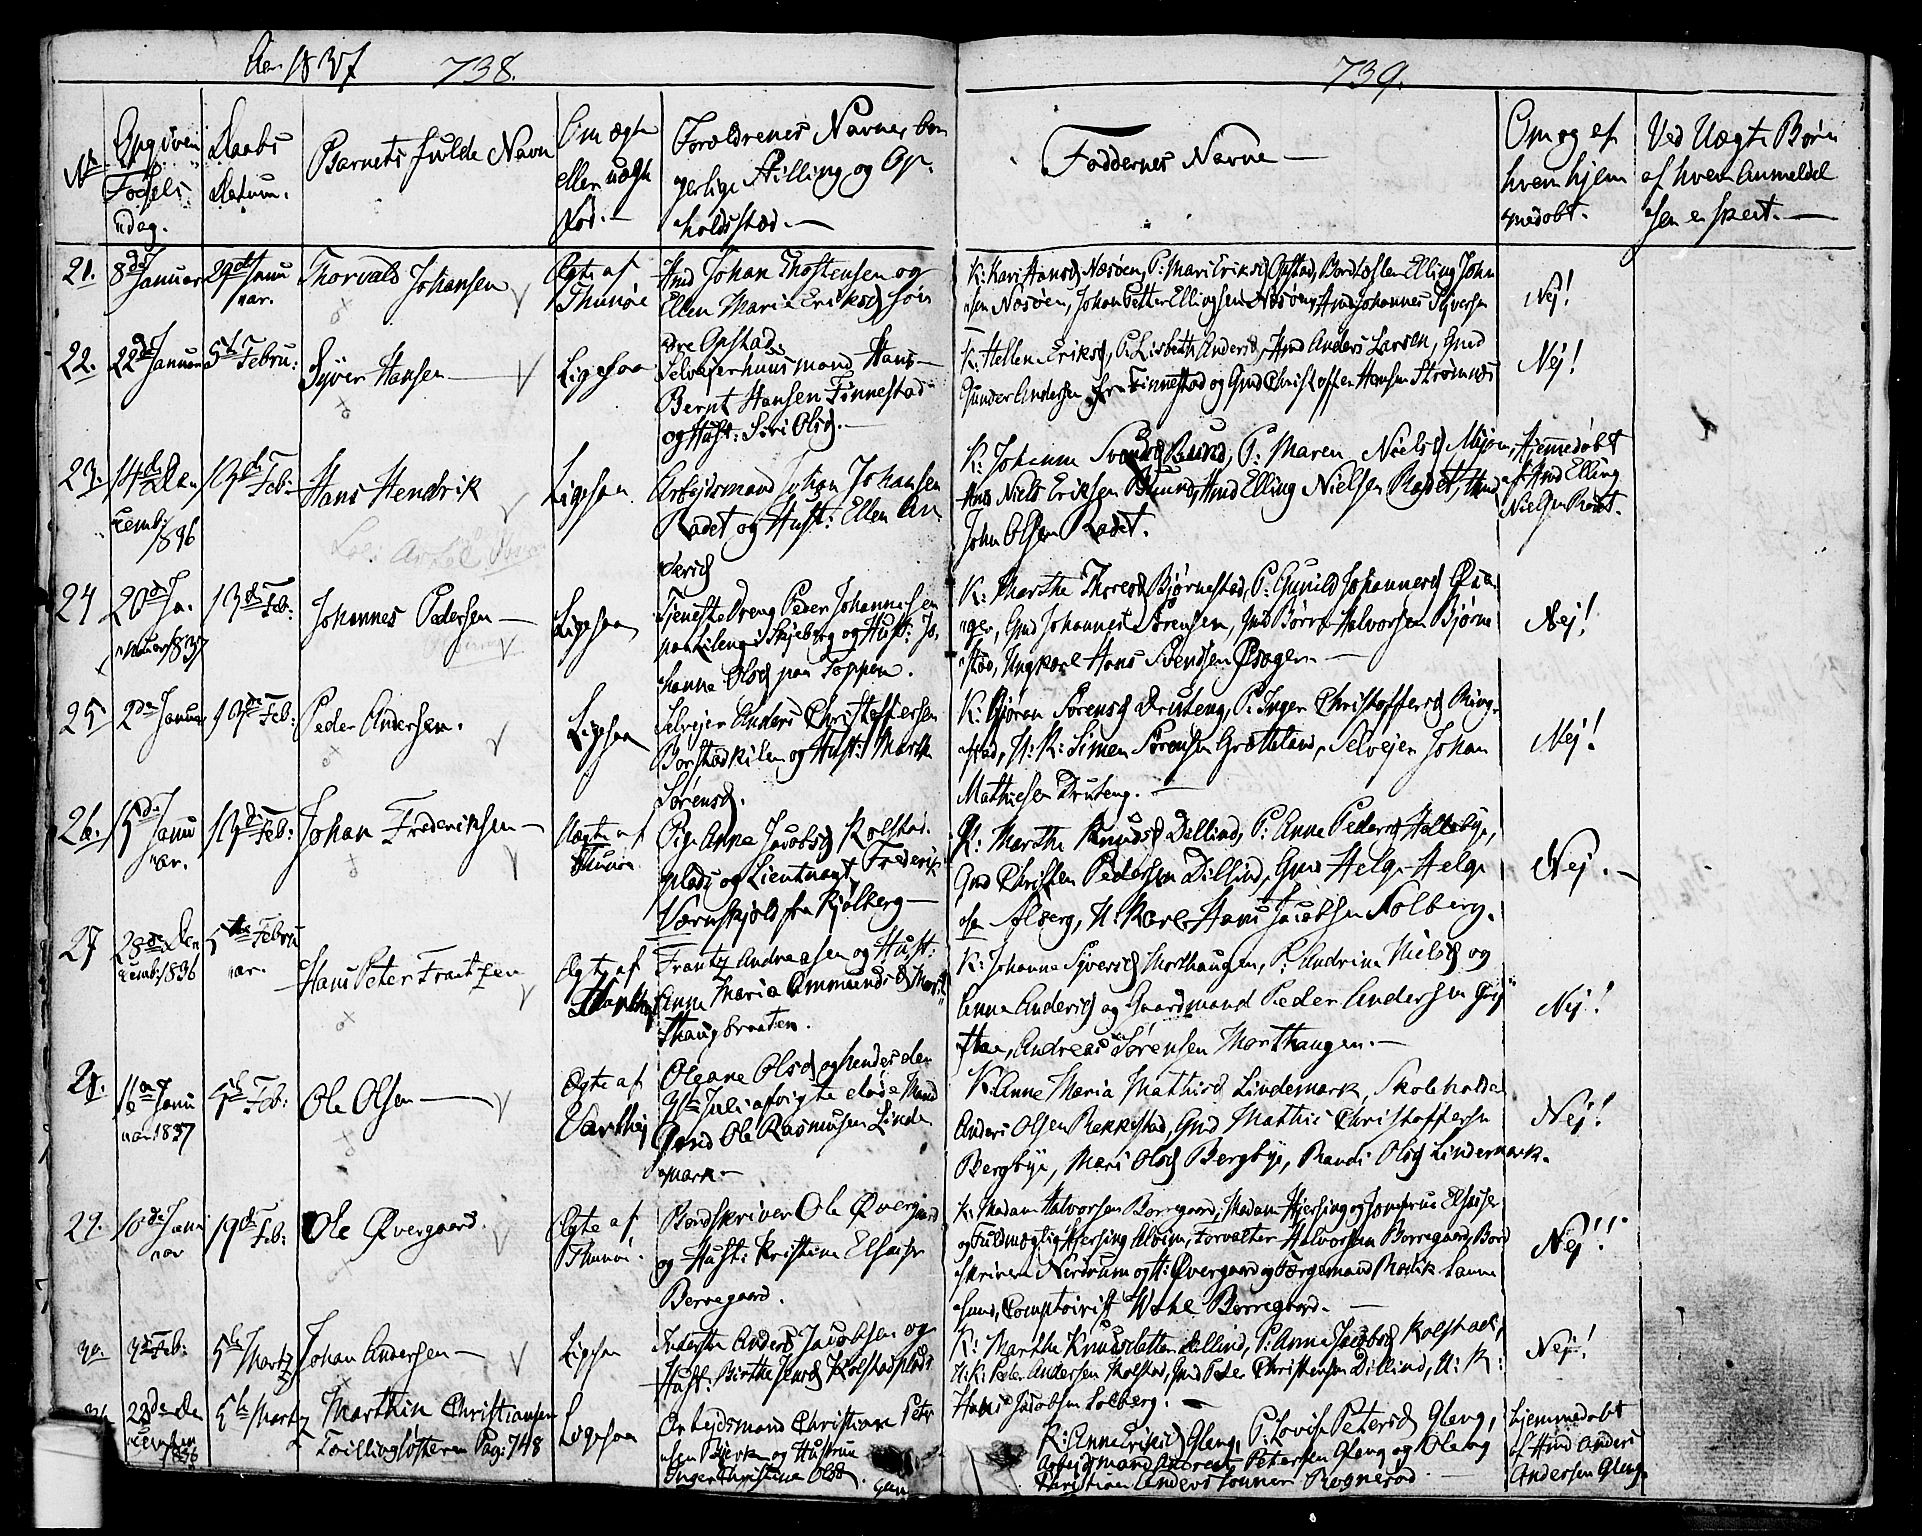 Aar 1837 738.
739.
No
Angiven Fødsels dag.
Daabs Datum.
Barnets fulde Navn
Om ægte eller uægte Fød.
Forældrenes Navne, bor
gerlige Stilling og Op-
holdssted.
Faddernes Navne
Om og af hvem hjem medøbt.
Ved Uægte Børn af hvem Anmeldel sen er skeet.
21. 8de Januar 29de Janu ar. Thorvald Johansen Ægte af Thunøe
Hmd Johan Thostensen og
Ellen Maria Eriksd søn
dre Opstad.
K: Kari Hansd Næsøen, P: Mari Eriksd Opstad, Elling John
sen Næsøen, Johan Petter Ellingsen Næsøen, Hmd Johannes Syversen
Nej!
22. 22de Januar 5te Febru: Syver Hansen Ligesaa
Selvejerhuusmand Hans
Bernt Hansen Finnestad
og Hust: Siri Olsd.
K: Hellene Eriksd, P: Lisbeth Andersd, Hmd Anders Larsen, Gmd
Gunder Andersen fra Finnestad og Gmd Christoffer Hansen Strømnes
Nej!
23. 14de De cemb: 1836 13de Feb: Hans Hendrik Ligesaa
Arbejdsmand Johan Johansen
Rødet og Hust: Ellen An
dersd
K: Johanne Svendsd Buund, P: Maren Nielsd
Hmd Niels Eriksen Buund, Hmd Elling Nielsen Rødet, Hmd
John Olsen Rødet.
Hjemmedøbt af Hmd Elling Nielsen Rødet.
24 20de Ja nuar 1837 13de Feb: Johannes Pedersen Ligesaa
Tjeneste Dreng Peder Johannesen
paa i Skjeberg og Hust: Jo
hanne Olsd paa Toppen.
K: Marthe Thoresd Bjørnestad, P: Gunild Johannesd
Gmd Johannes Sørensen, Gmd Børre Halvorsen Bjørne
stad, Ungkarl Hans Svendsen
Nej!
25 2de Januar 13de Feb: Peder Andersen. Ligesaa
Selvejer Anders Christoffersen
Borstad Kilen og Hust: Marthe
Sørensd.
K: Gjøran Sørensd Druteng, P: Inger Christoffersd Ring
stad, U: K: Simen Sørensen Grotteland, Selvejer Johan
Mathiesen Druteng.
Nej!
26. 15de Janu ar. 13de Feb: Johan Frederiksen Uægte af Thunøe
Pige Anne Jacobsd Kolstad
plads og Lieutnant Frederik
Værnskjold fra Kjølberg
K: Marthe Knudsd Dillind, P: Anne Pedersd Holtebye,
Gmd Christen Pedersen Dillind, Gmd Helge Helge
sen Solberg, U: Karl Hans Jacobsen Solberg.
Nej.
27 28de De cemb: 1836 5te Febru ar. Hans Peter Frantzen Ægte af Varthej
Frantz Andreasen og Hust:
Anne Maria Ammundsd Mort
Haugbraaten.
K: Johanne Syversd Morthaugen, P: Andrine Nielsd og
Anne Andersd og Gaardmand Peder Andersen
Andreas Sørensen Morthaugen.
Nej!
28. 11te Janu uar 1837 5te Feb: Ole Olsen Ægte af Varthej
Oleane Olsd og hendes den
Juli afvigte døde Mand
Gmd Ole Rasmussen Linde
mark.
K: Anne Maria Mathisd Lindemark, Skoleholder
Anders Olsen Rekkestad, Gmd Mathis Christoffersen
Bergbye, Mari Olsd Bergbye, Randi Olsd Lindemark.
Nej!
29. 10de Janu ar 19de Feb: Ole Øvergaard. Ægte af Thunøe.
Bordskriver Ole Øvergaard
og Hust: Kristine Elsasser
Borregaard.
K: Madam Halvorsen Borregaard, Madam Hjersing og Jomfrue Elsasser
og Fuldmægtig Hjersing Alvim, Forvalter Halvorsen Borregaard, Bord
skriver Nerdrum og H: Øvergaard og Færgemand
sund, Comptoirist Wahl Borregaard.
Nej!
30. 3de Feb: 5te Martz Johan Andersen Ligesaa
Inderste Anders Jacobsen og
Hust: Birthe Jensd Kolstadplads
K: Marthe Knudsdatter Dillind, P: Anne Jacobsd Kolstad,
U: K: Peder Andersen Kolstad, Gmd Peter Christensen Dillind, U: K:
Hans Jacobsen Solberg.
Nej!
31 22de De cember 1836 5te Martz Marthin Christiansen Ligesaa
Tvillingsøsteren Pag: 748
Arbejdsmand Christian Peter
sen og Hustrue
Inger Christine Olsd.
K: Anne Eriksd Gleng, P: Lovise Petersd Gleng,
Arbejdsmand Andreas Petersen Gleng og
Christian Anders sønner Rognerød.
hjemmedøbt af Hmd Anders Andersen Gleng.